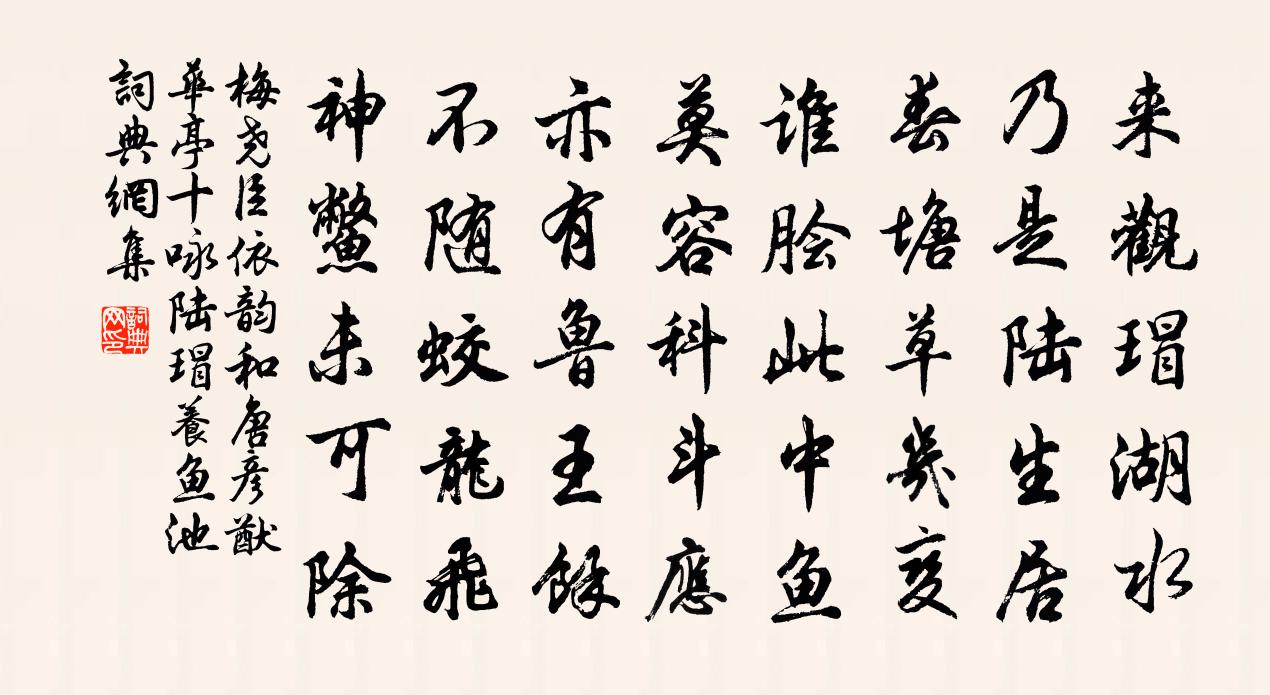 来觀瑁湖水
乃是陆生居
春塘草幾变
谁脍此中鱼
莫容科斗應
亦有鲁王餘
不随蛟龍飛
神鳖未可除
梅尧臣依韵和唐彦猷
華亭十咏陆瑁養鱼池
詞典網集
詞典网印